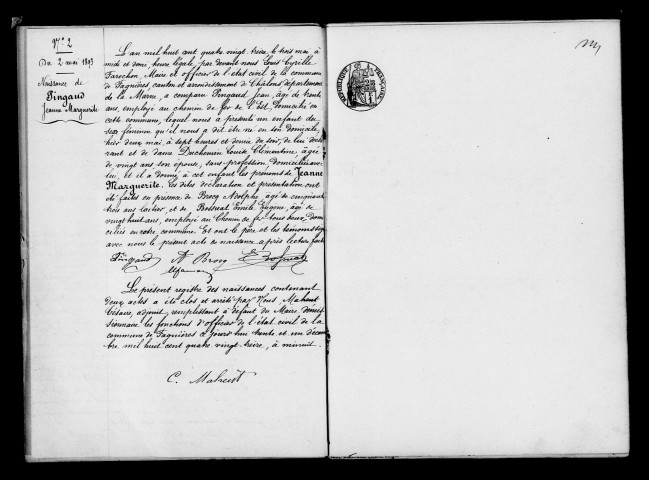 N° 2
Du 2 mai 1893
Naissance de
Pingaud
Jeanne Marguerite
L'an mil huit cent quatre vingt-treize, le trois mai à
midi et demi, heure légale, par devant nous Louis Cyrille
Farochon, Maire et officier de l'état civil de la commune
de Fagnières, canton et arrondissement de Châlons, département
de la Marne, a comparu Pingaud Jean, âgé de trente
ans, employé au chemin de fer de l'Est, domicilié en
cette commune, lequel nous a présenté un enfant du
sexe féminin qu'il nous a dit être né en son domicile,
hier deux mai, à sept heures et demie du soir, de lui décla-
rant et de dame Duchemin Louise Clémentine, âgée
de vingt ans son épouse, sans profession, domiciliée avec
lui, et il a donné à cet enfant les prénoms de Jeanne
Marguerite. Les dites déclaration et présentation ont
été faites en présence de Brocq Adolphe, âgé de cinquante
trois ans, et de Émile Eugène, âgé de
vingt huit ans, employé au Chemin de fer tous deux domi-
ciliés en notre commune. Et ont le père et les témoins signé
avec nous le présent acte de naissance, après lecture faite
Pingaud A Brocq
Le présent registre des naissances contenant
deux actes a été clos et arrêté par Nous Maheut
Césaire, adjoint, remplissant à défaut du Maire démis-
sionnaire les fonctions d'officier de l'état civil de la
commune de Fagnières aujourd'hui trente et un décem-
bre mil huit cent quatre vingt-treize, à minuit.
C. Maheut
RÉPUBLIQUE FRANÇAISE